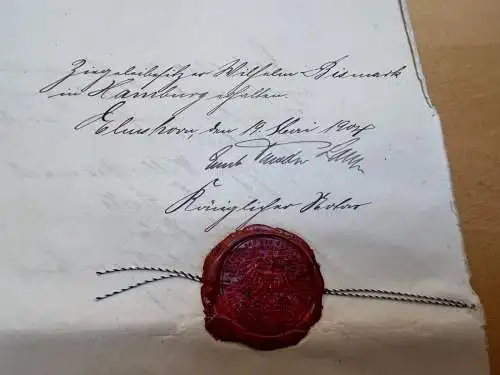 Ziegeleibesitzer Wilhelm Bismark
in Hamburg erhalten.
Elmshorn, den 19. Mai 190
Königlicher Notar